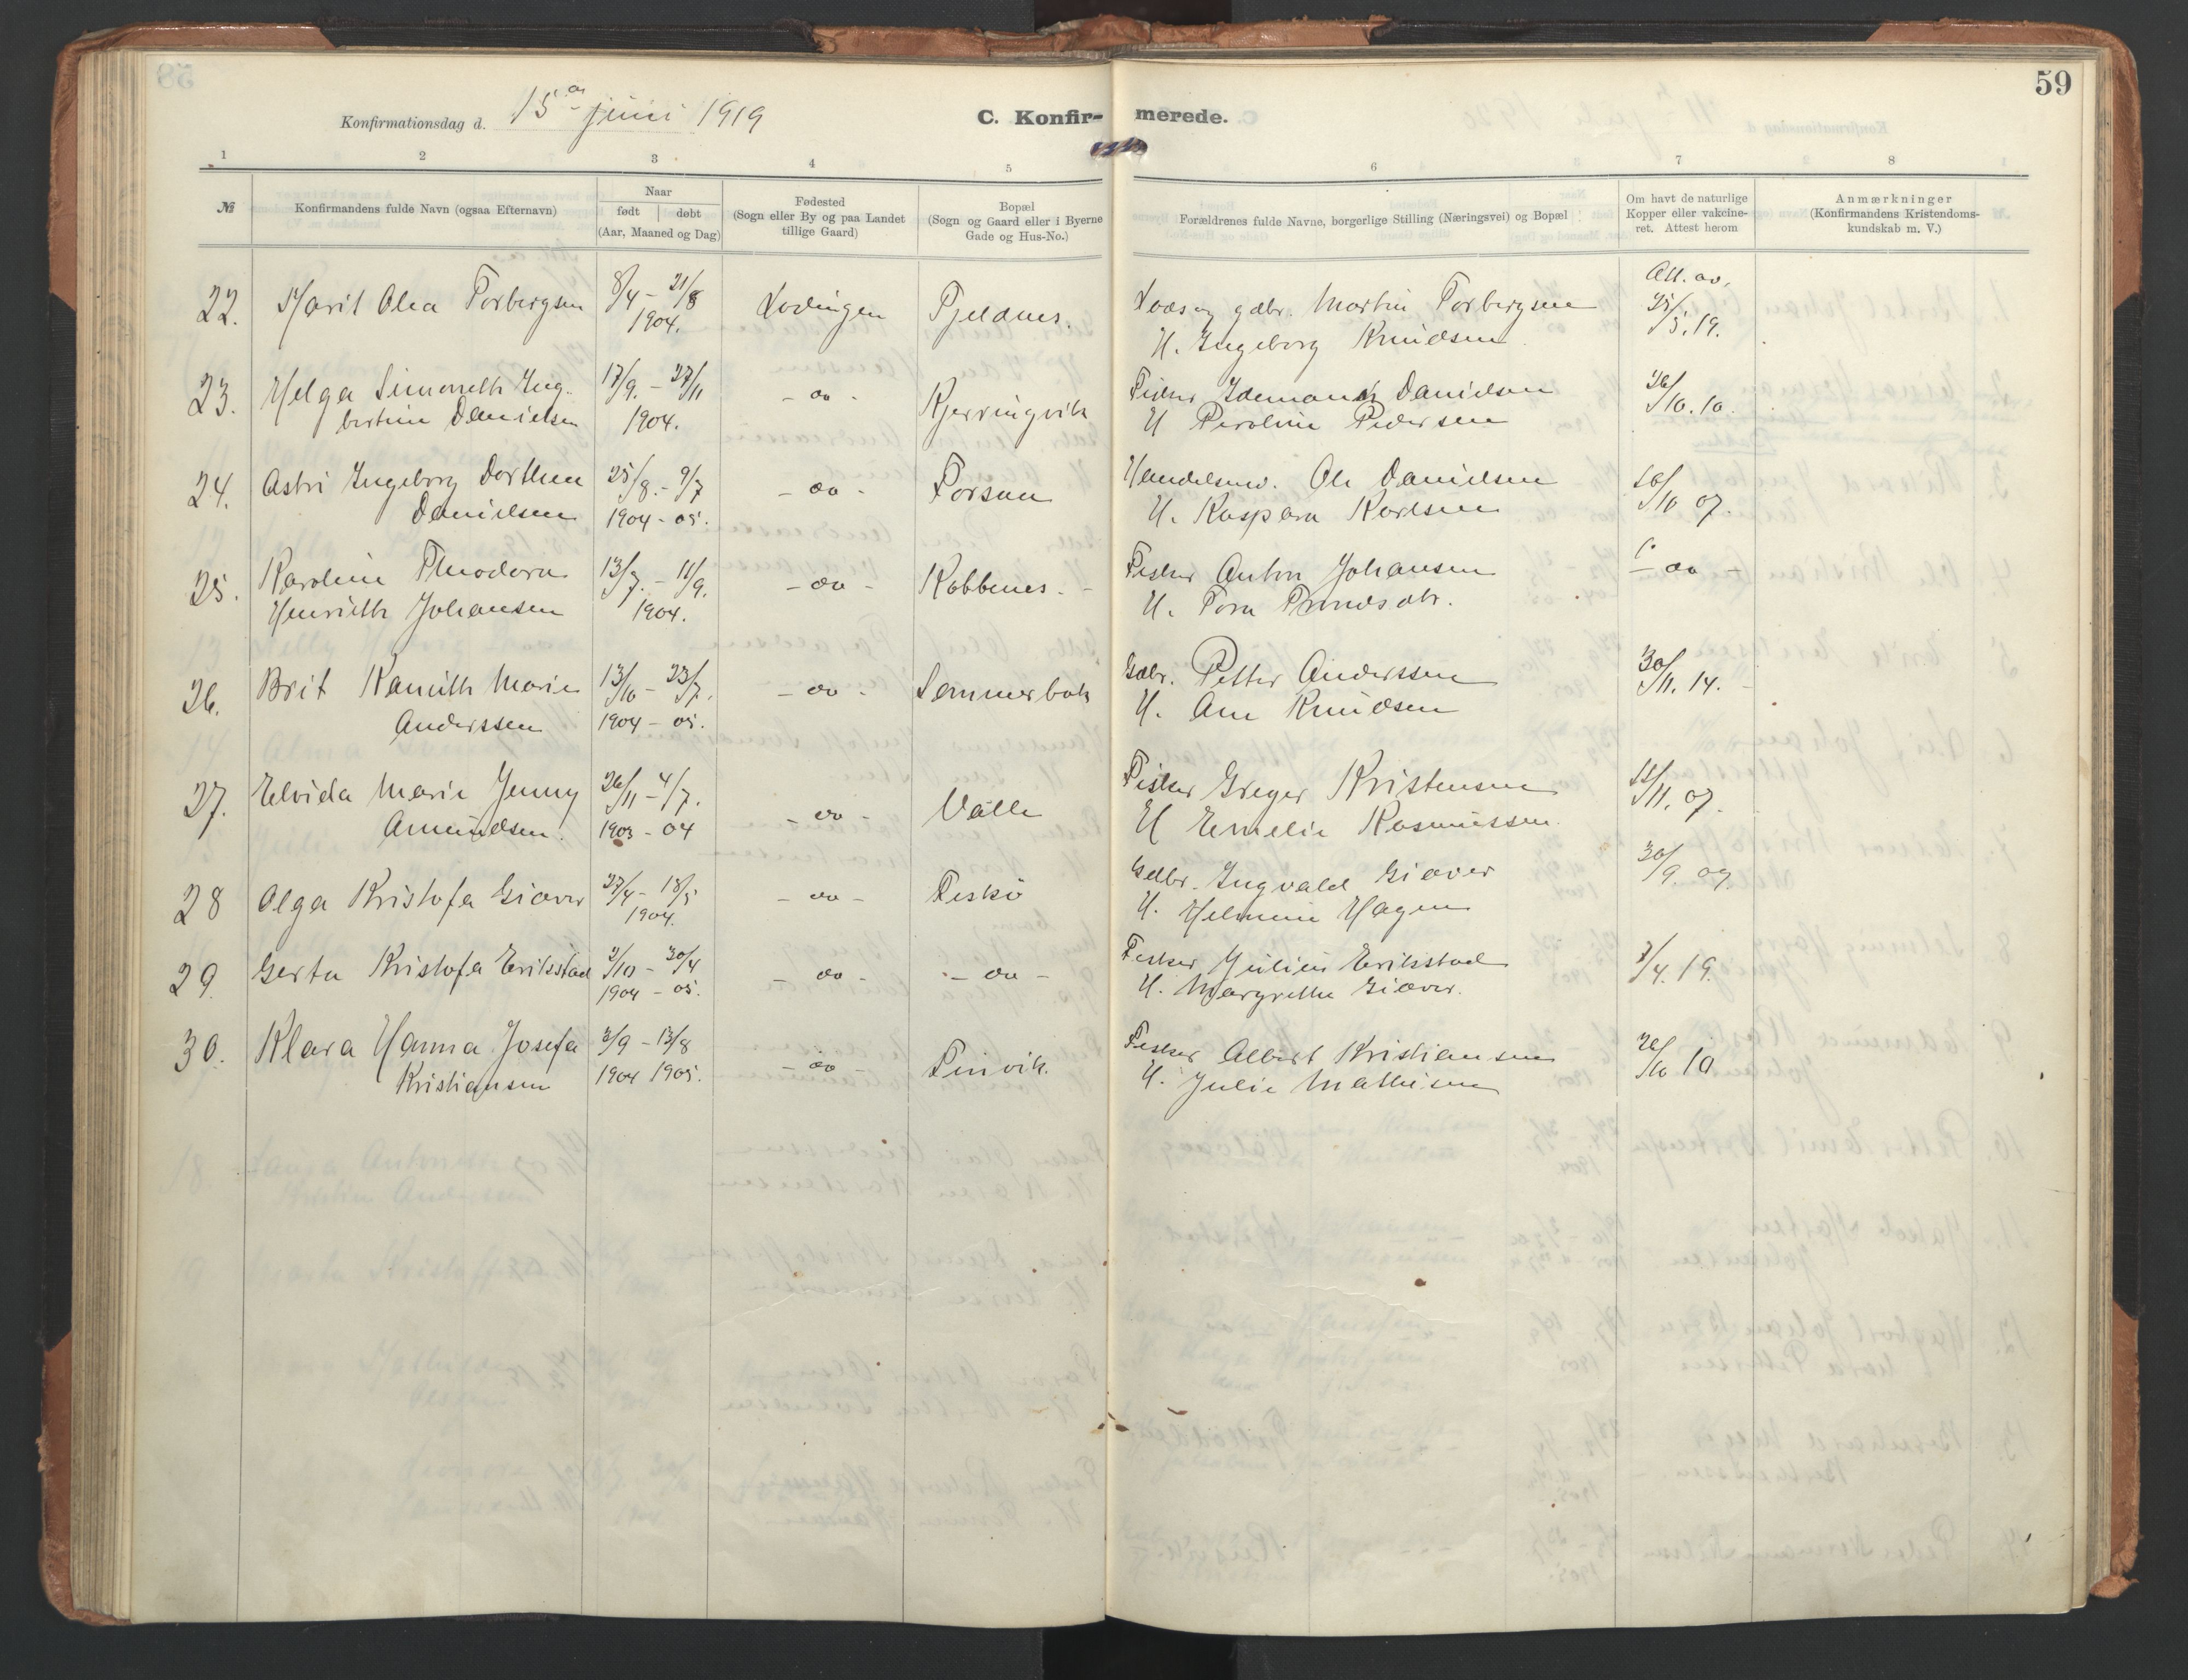 59
Konfirmationsdag d. 15de juni 1919
C. Konfir- merede.
1 2 3 4 5 6 7 8
№
Konfirmandens fulde Navn (ogsaa Efternavn)
Naar
født | døbt
(Aar, Maaned og Dag)
Fødested
(Sogn eller By og paa Landet
tillige Gaard)
Bopæl
(Sogn og Gaard eller i Byerne
Gade og Hus-No.)
Forældrenes fulde Navne, borgerlige Stilling (Næringsvei) og Bopæl
Om havt de naturlige
Kopper eller vakcine-
ret. Attest herom
Anmærkninger
(Konfirmandens Kristendoms-
kundskab m. V.)
22. Marit Olea Torbergsen 8/4 – 21/8 Lødingen Tjeldnes. Lods og gdbr. Martin Torbergsen Att. av.
1904. H. Ingeborg Knudsen 25/5.19.
23. Helga Simonelle Ing- 17/9. – 27/11 – do – Kjerringvik Fisker Idemann Danielsen 26/10.10.
bertine Danielsen 1904. H Peroline Pedersen
24. Astri Ingeborg Dorthea 25/8. – 9/7 – do – Forsaa Handelsmd. Ole Danielsen 16/10 07.
Danielsen 1904 – 05. H. Kaspara Karlsen
25. Karoline Theodora 13/7. – 11/9. – do – Kobbenes. Fisker Anton Johansen – do –
Henriette Johansen 1904. H. Tora Trondsdtr.
26. Brit Kamilla Marie 13/10 – 23/7. – do – Sommerbak Gdbr. Petter Anderssen 30/11. 14.
Anderssen 1904 – 05. H. Ane Knudsen
27. Elvida Marie Jenny 26/11 – 4/7. – do – Valle Fisker Greger Kristensen 12/11. 07.
Amundsen. 1903 – 04 H Emelie Rasmussen.
28 Olga Kristofa Giæver 27/4 – 18/5 – do – Fiskø Gdbr. Ingvald Giæver 30/9. 09.
1904. H. Helmine Hagen
29. Gerta Kristofa Eriksstad 2/10 – 30/4 – do – – do – Fisker Julius Eriksstad 7/4. 19.
1904 – 05. H. Margrethe Giæver.
30. Klara Hanna Josefa 3/9 – 13/8 – do – Finvik. Fisker Albert Kristiansen 26/10 10
Kristiansen 1904 1905. H. Julie Mathisen